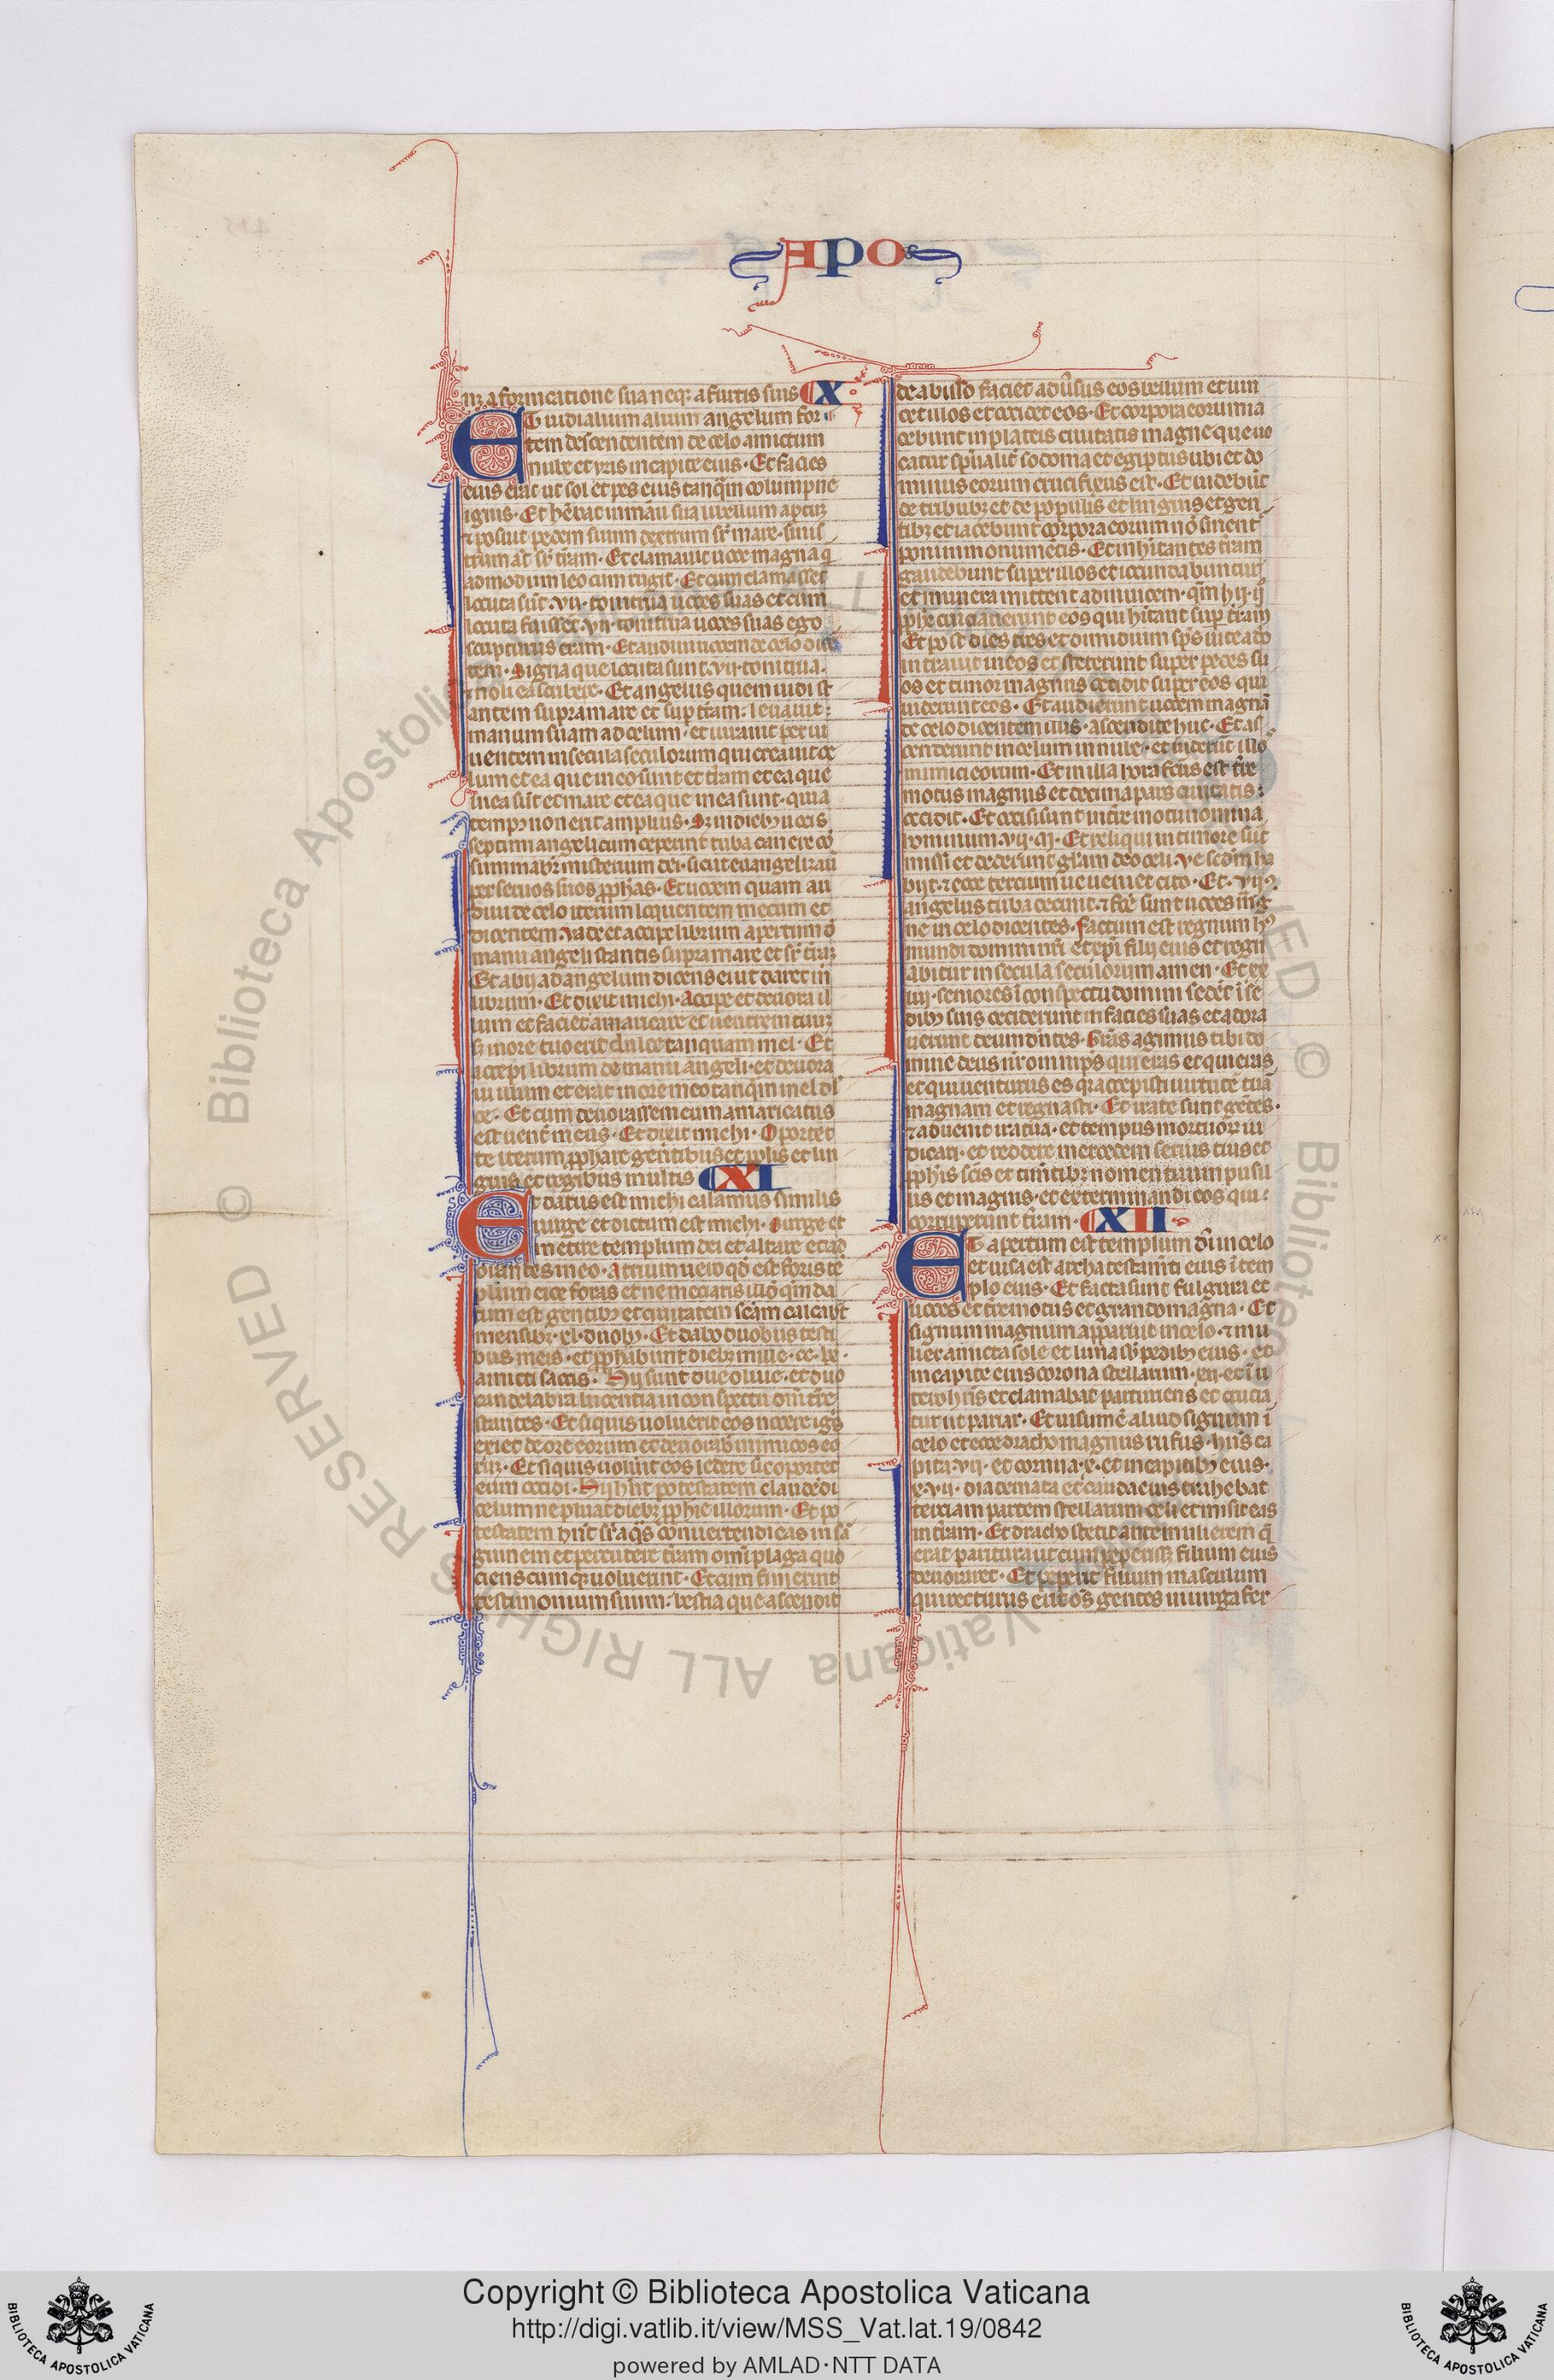 APO
nȝ a fornicatione sua neqȝ a furtis suis X
Et uidi alium alium angelum for
tem descendentem de celo amictum
nube et yris in capite eius. Et facies
eius erat ut sol et pes eius tanqm columpne
ignis. Et hebat in manu sua libellum aptuȝ
⁊ posuit pedem suum dextrum sr mare. sinis
trum at sr tram. Et clamauit uoce magna q
admodum leo cum rugit. Et cum clamasset
locuta sut .vii. tonitrua uoces suas et cum
locuta fuisset .vii. tonitrua uoces suas ego
scripturus eram. Et audiui uocem de celo dice
tem. Signa que locuta sunt .vii. tonitrua.
⁊ noli ea scribere. Et angelus quem uidi st
antem supra mare et sup tram: leuauit:
manum suam ad celum. et iurauit per ui
uentem in secula seculorum qui creauit ce
lum et ea que in eo sunt et tram et ea que
in ea sut et mare et ea que in ea sunt. quia
tempꝰ non erit amplius. Sȝ in diebꝫ uocis
septimi angeli cum ceperit tuba canere co
summabr misterium dei. sicut euangelizau
per seruos suos pphas. Et uocem quam au
diui de celo iterum loquentem mecum et
dicentem. Vade et accipe librum apertum d
manu angeli stantis supra mare et sr traȝ
Et abii ad angelum dicens ei ut daret m
librum. Et dixit michi. Accipe et deuora il
lum et faciet amaricare et uentrem tuuȝ
sȝ in ore tuo erit dulce tanquam mel. Et
accepi librum de manu angeli. et deuora
ui illum et erat in ore meo tanqm mel dl
ce. Et cum deuorassem eum amaricatus
est uenter meus. Et dixit michi. Oportet
te iterum pphare gentibus et pplis et lin
guis et regibus multis XI
Et datus est michi calamus similis
uirge et dictum est michi. Surge et
metire templum dei et altare et ad
orantes in eo. Atrium uero qd est foris te
plum eice foras et ne metiaris illd qm da
tum est gentibꝫ et ciuitatem scam calcabt
mensibꝫ .xl. duobꝫ. Et dabo duobus testi
bus meis. et pphabunt diebꝫ mille .cc. lx.
amicti saccis. Hij sunt due oliue. et duo
candelabra lucentia in conspectu dni tre
stantes. Et siquis uoluerit eos nocere igs
exiet de ore eorum et deuorabit inimicos eo
ruȝ. Et siquis uoluit eos ledere sic oportet
eum occidi. Hij hnt potestatem claudendi
celum ne pluat diebꝫ pphie illorum. Et po
testatem hnt sr aqs conuertendi eas in sa
guinem et percutere tram omi plaga quo
ciens cumqȝ uoluerint. Et cum finierint
testimonium suum: bestia que ascendit
de abisso faciet aduersus eos bellum et uin
cet illos et occidet eos. Et corpora eorum ia
cebunt in plateis ciuitatis magne que uo
catur spirualit sodoma et egiptus ubi et do
minus eorum crucifixus est. Et uidebut
de tribubꝫ et de populis et linguis et gen
tibꝫ et iacebunt corpora eorum no sinent
poni in monumetis. Et inhitantes tram
gaudebunt super illos et iocundabuntur
et munera mittent adinuicem. qm hij .ij.
pphe cruciauerunt eos qui hitant sup tram
Et post dies tres et dimidium sps uite a do
intrauit in eos et steterunt super pedes su
os et timor magnus cecidit super eos qui
uiderunt eos. Et audierunt uocem magna
de celo dicentem illis. Ascendite huc. Et as
cenderunt in celum in nube. et uiderut illo
inimici eorum. Et in illa hora fctus est tre
motus magnus et decima pars ciuitatis:
cecidit. Et occisi sunt in tre motu nomina
hominum .vii. m. Et reliqui in timore sut
missi et dederunt glam deo celi. Ve scdm ha
bijt. ⁊ ecce tercium ue ueniet cito. Et .vii.
angelus tuba cecinit. ⁊ fce sunt uoces mg
ne in celo dicentes. Factum est regnum hꝰ
mundi domini nri et xpi filij eius et regn
abitur in secula seculorum amen. Et xx
iiij. seniores i conspectu domini sedet i se
dibꝫ suis ceciderunt in facies suas et adora
uerunt deum dntes. Gras agimus tibi do
mine deus nr omnips qui eras et qui eras
et qui uenturus es qr accepisti uirtute tua
magnam et regnasti. Et irate sunt getes.
⁊ aduenit ira tua. et tempus mortuor iu
dicari. et reddere mercedem seruis tuis et
pphis scis et timtibꝫ nomen tuum pusil
lis et magnis. et exterminandi eos qui:
corruperunt tram. XII
Et apertum est templum di in celo
et uisa est archa testamti eius i tem
plo eius. Et facta sunt fulgura et
uoces et tremotus et grando magna. Et
signum magnum apparuit in celo. ⁊ mu
lier amicta sole et luna sb pedibꝫ eius. et
in capite eius corona stellarum .xii. et i u
tero hns et clamabat parturiens et crucia
tur ut pariat. Et uisum e aliud signum i
celo et ecce dracho magnus rufus. hns ca
pita .vii. et cornua .x. et in capitibꝫ eius.
x.vii. diademata et cauda eius trahebat
terciam partem stellarum celi et misit eas
in tram. Et dracho stetit ante mulierem q
erat paritura ut cum peperissȝ filium eius
deuoraret. Et peperit filium masculum
qui recturus erit os gentes in uirga fer
Copyright © Biblioteca Apostolica Vaticana
http://digi.vatlib.it/view/MSS_Vat.lat.19/0842
powered by AMLAD·NTT DATA
BIBLIOTECA APOSTOLICA VATICANA
BIBLIOTECA APOSTOLICA VATICANA
© Biblioteca Apostolica Vaticana ALL RIGHTS RESERVED © Biblioteca Apostolica Vaticana ALL RIGHTS RESERVED